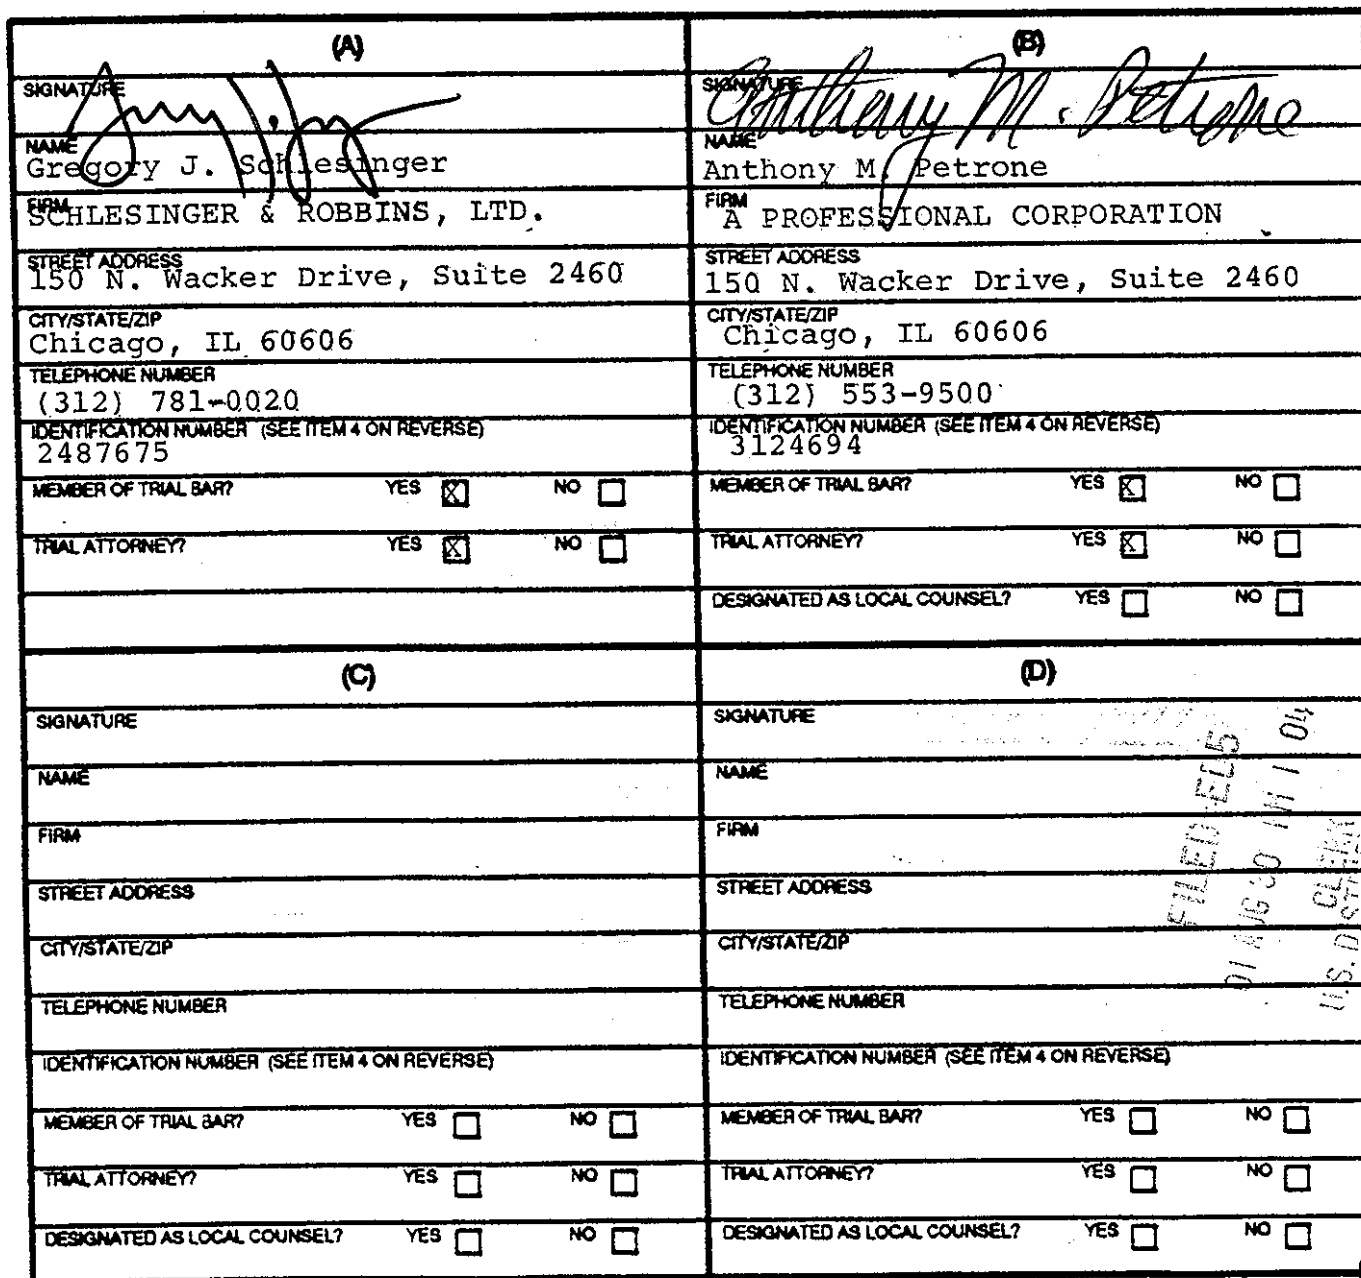 (A)
SIGNATURE
NAME
Gregory J. Schlesinger
FIRM
SCHLESINGER & ROBBINS, LTD.
STREET ADDRESS
150 N. Wacker Drive, Suite 2460
CITY/STATE/ZIP
Chicago, IL 60606
TELEPHONE NUMBER
(312) 781-0020
IDENTIFICATION NUMBER (SEE ITEM 4 ON REVERSE)
2487675
MEMBER OF TRIAL BAR? YES X NO
TRIAL ATTORNEY? YES X NO
(B)
SIGNATURE
Anthony M. Petrone
NAME
Anthony M. Petrone
FIRM
A PROFESSIONAL CORPORATION
STREET ADDRESS
150 N. Wacker Drive, Suite 2460
CITY/STATE/ZIP
Chicago, IL 60606
TELEPHONE NUMBER
(312) 553-9500
IDENTIFICATION NUMBER (SEE ITEM 4 ON REVERSE)
3124694
MEMBER OF TRIAL BAR? YES X NO
TRIAL ATTORNEY? YES X NO
DESIGNATED AS LOCAL COUNSEL? YES NO
(C)
SIGNATURE
NAME
FIRM
STREET ADDRESS
CITY/STATE/ZIP
TELEPHONE NUMBER
IDENTIFICATION NUMBER (SEE ITEM 4 ON REVERSE)
MEMBER OF TRIAL BAR? YES NO
TRIAL ATTORNEY? YES NO
DESIGNATED AS LOCAL COUNSEL? YES NO
(D)
SIGNATURE
NAME
FIRM
STREET ADDRESS
CITY/STATE/ZIP
TELEPHONE NUMBER
IDENTIFICATION NUMBER (SEE ITEM 4 ON REVERSE)
MEMBER OF TRIAL BAR? YES NO
TRIAL ATTORNEY? YES NO
DESIGNATED AS LOCAL COUNSEL? YES NO
FILED
CLERK
U.S.